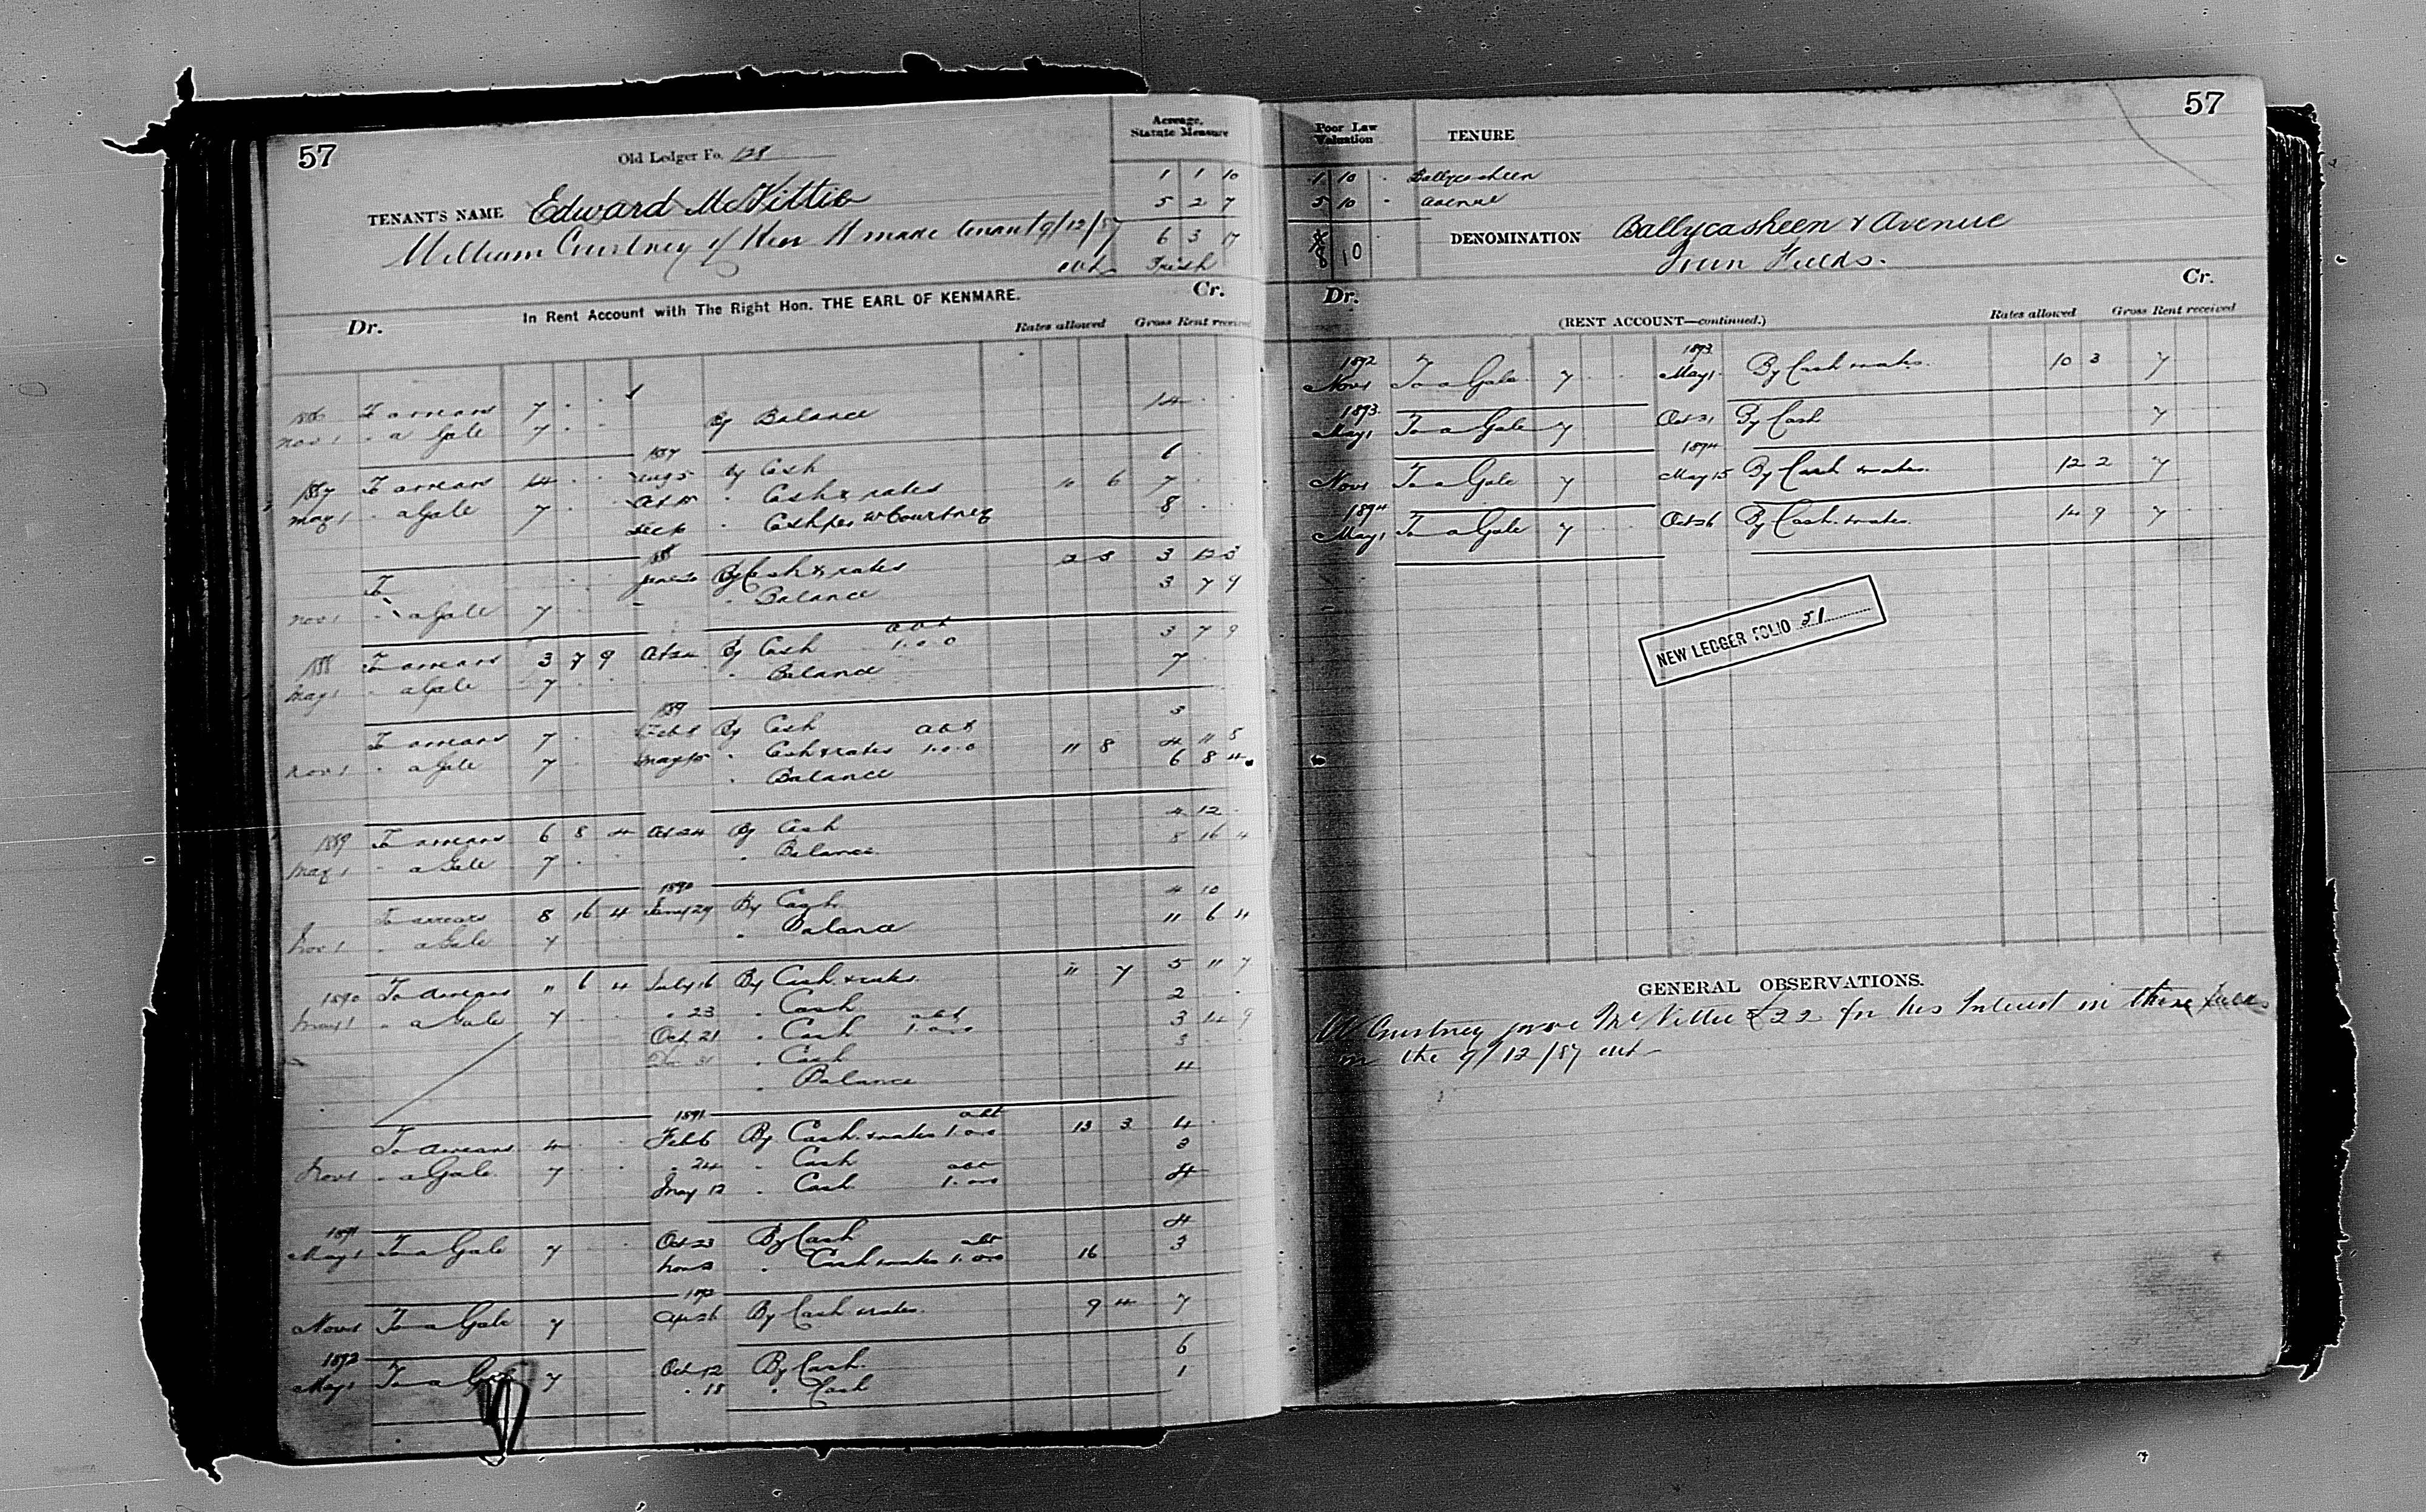 57
Old Ledger Fo. 128
Acreage, Statute Measure
TENANT'S NAME Edward McVittie
William Courtney of Ken made tenant 9/12/87
1 1 10
5 2 7
6 3 17
Irish
In Rent Account with The Right Hon. THE EARL OF KENMARE.
Dr. Cr.
Rates allowed Gross Rent received
1886 To arrears 7 . .
Nov 1 " a Gale 7 . . By Balance 14 . .
1887 To arrears 14 . . 1887 Aug 5 By Cash 6
May 1 " a Gale 7 . . Oct 15 " Cash & rates 11 6 7 . .
Dec 10 " Cash per W Courtney 8 . .
To 1888 June 20 By Cash & rates 12 3 3 12 3
Nov 1 " a Gale 7 . . " Balance 3 7 9
1888 To arrears 3 7 9 Oct 20 By Cash abt 1.0.0 3 7 9
May 1 " a Gale 7 . . " Balance 7
1889
To arrears 7 . . Feb 8 By Cash 3
Nov 1 " a Gale 7 . . May 15 " Cash & rates abt 1.0.0 11 8 4 11 8
" Balance 6 8 4
1889 To arrears 6 8 4 Oct 24 By Cash 4 12 .
May 1 " a Gale 7 . . " Balance 8 16 4
1890
To arrears 8 16 4 Jany 29 By Cash 4 10
Nov 1 " a Gale 7 . . " Balance 11 6 4
1890 To arrears 11 6 4 July 16 By Cash & rates 11 7 5 11 7
May 1 " a Gale 7 . . " 23 " Cash 2 .
Oct 21 " Cash abt 1.0.0 3 14 9
Dec 31 " Cash 3
" Balance 4
1891
To arrears 4 . . Feb 6 By Cash & rates abt 1.0.0 13 3 4
Nov 1 " a Gale 7 . . " 24 " Cash 3
May 12 " Cash abt 1.0.0 4
1891
May 1 To a Gale 7 . . Oct 23 By Cash 4
Nov 2 " Cash & rates abt 1.0.0 16 3
1892
Nov 1 To a Gale 7 Apr 26 By Cash & rates 9 4 7
1892
May 1 To a Gale 7 Oct 12 By Cash 6
" 18 " Cash 1
57
Poor Law Valuation
TENURE
1 10 . Ballycasheen
5 10 . Avenue
8 10
DENOMINATION Ballycasheen & Avenue
Town Fields.
Dr. Cr.
(RENT ACCOUNT—continued.)
Rates allowed Gross Rent received
1892 Nov 1 To a Gale 7 . . 1893 May 1 By Cash & rates. 10 3 7
1893 May 1 To a Gale 7 Oct 31 By Cash 7
Nov 1 To a Gale 7 1894 May 15 By Cash & rates. 12 2 7
1894 May 1 To a Gale 7 . . Oct 26 By Cash & rates. 14 9 7 . .
NEW LEDGER FOLIO 51
GENERAL OBSERVATIONS.
W Courtney gave McVittie £22 for his Interest in these fields
on the 9/12/87